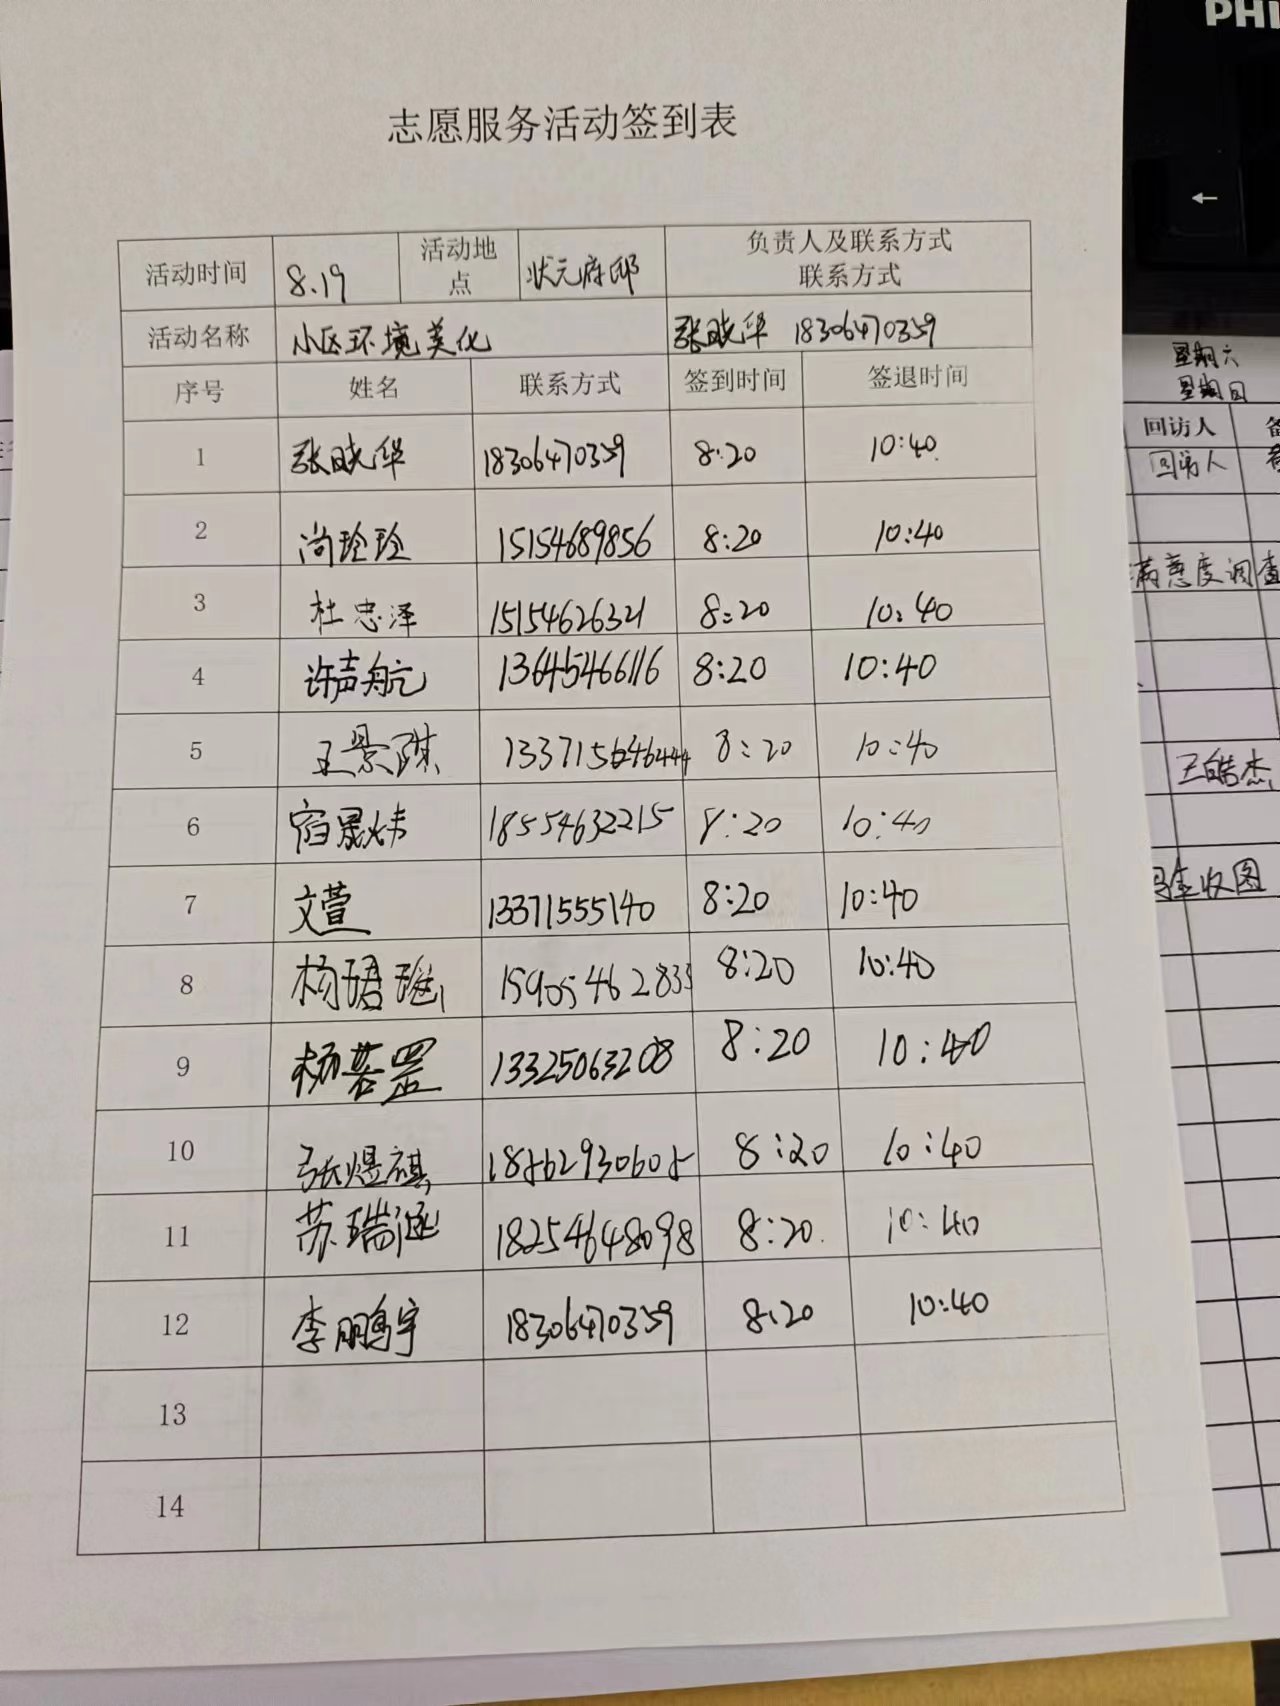 PHI
←
志愿服务活动签到表
活动时间 8.19 活动地点 状元府邸 负责人及联系方式
联系方式
活动名称 小区环境美化 张晓华 18306470359
序号 姓名 联系方式 签到时间 签退时间
1 张晓华 18306470359 8:20 10:40
2 尚玲玲 15154689856 8:20 10:40
3 杜忠泽 15154626321 8:20 10:40
4 许声航 13645466116 8:20 10:40
5 王景琪 8:20 10:40
6 宿晟炜 18554632215 8:20 10:40
7 文萱 13371555140 8:20 10:40
8 杨珺瑶 15905462833 8:20 10:40
9 杨若罡 13325063208 8:20 10:40
10 张煜祺 18562930605 8:20 10:40
11 苏瑞涵 18254648098 8:20 10:40
12 李鹏宇 18306470359 8:20 10:40
13
14
星期六
星期日
回访人
回访人
满意度调查
王皓杰
验收图